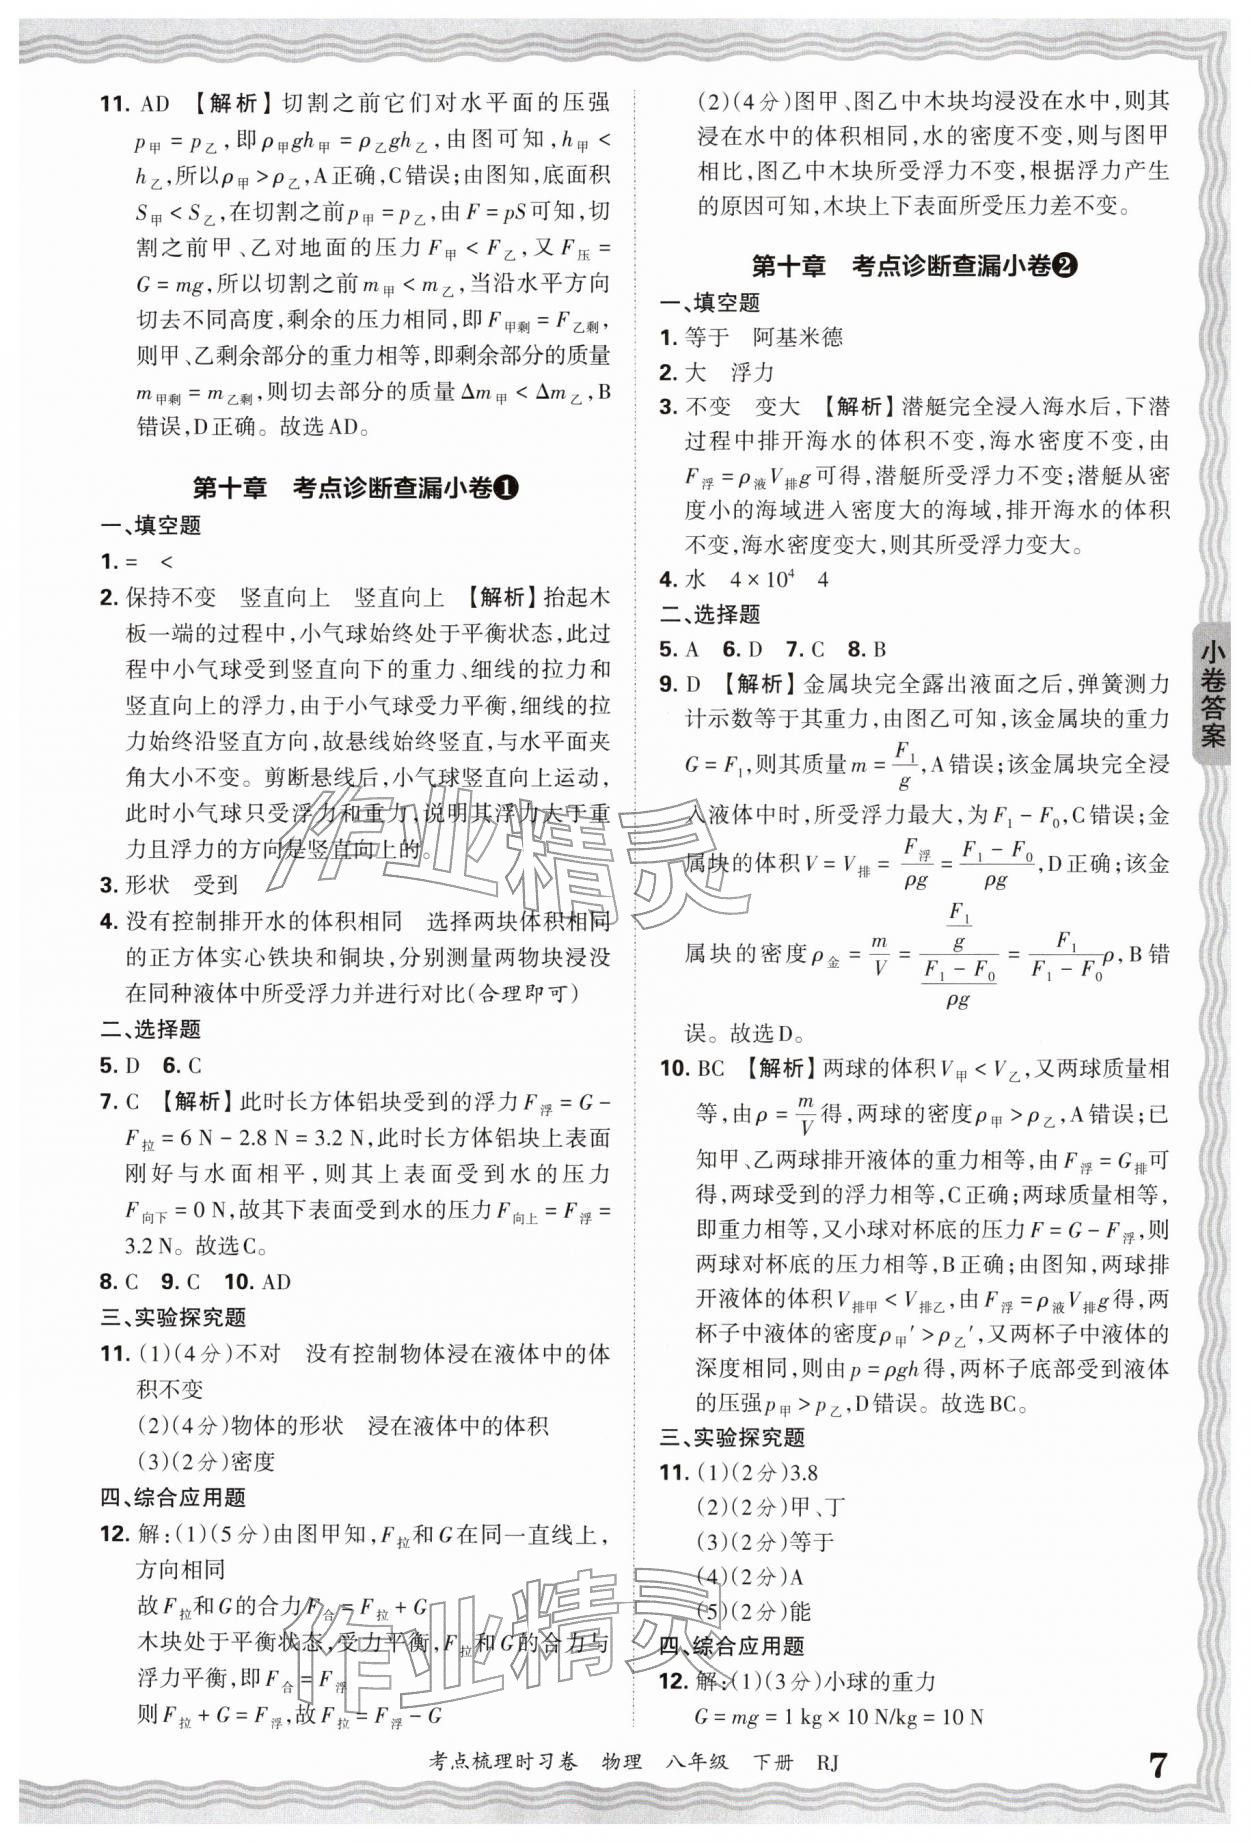 11. AD 【解析】切割之前它们对水平面的压强
p甲 = p乙,即ρ甲gh甲 = ρ乙gh乙,由图可知,h甲 <
h乙,所以ρ甲 > ρ乙,A正确,C错误;由图知,底面积
S甲 < S乙,在切割之前p甲 = p乙,由F = pS可知,切
割之前甲、乙对地面的压力F甲 < F乙,又F压 =
G = mg,所以切割之前m甲 < m乙,当沿水平方向
切去不同高度,剩余的压力相同,即F甲剩 = F乙剩,
则甲、乙剩余部分的重力相等,即剩余部分的质量
m甲剩 = m乙剩,则切去部分的质量Δm甲 < Δm乙,B
错误,D正确。故选AD。
第十章 考点诊断查漏小卷❶
一、填空题
1. = <
2. 保持不变 竖直向上 竖直向上 【解析】抬起木
板一端的过程中,小气球始终处于平衡状态,此过
程中小气球受到竖直向下的重力、细线的拉力和
竖直向上的浮力,由于小气球受力平衡,细线的拉
力始终沿竖直方向,故悬线始终竖直,与水平面夹
角大小不变。剪断悬线后,小气球竖直向上运动,
此时小气球只受浮力和重力,说明其浮力大于重
力且浮力的方向是竖直向上的。
3. 形状 受到
4. 没有控制排开水的体积相同 选择两块体积相同
的正方体实心铁块和铜块,分别测量两物块浸没
在同种液体中所受浮力并进行对比(合理即可)
二、选择题
5. D 6. C
7. C 【解析】此时长方体铝块受到的浮力F浮 = G −
F拉 = 6 N − 2.8 N = 3.2 N,此时长方体铝块上表面
刚好与水面相平,则其上表面受到水的压力
F向下 = 0 N,故其下表面受到水的压力F向上 = F浮 =
3.2 N。故选C。
8. C 9. C 10. AD
三、实验探究题
11. (1)(4分)不对 没有控制物体浸在液体中的体
积不变
(2)(4分)物体的形状 浸在液体中的体积
(3)(2分)密度
四、综合应用题
12. 解:(1)(5分)由图甲知,F拉和G在同一直线上,
方向相同
故F拉和G的合力F合 = F拉 + G
木块处于平衡状态,受力平衡,F拉和G的合力与
浮力平衡,即F合 = F浮
则F拉 + G = F浮,故F拉 = F浮 − G
(2)(4分)图甲、图乙中木块均浸没在水中,则其
浸在水中的体积相同,水的密度不变,则与图甲
相比,图乙中木块所受浮力不变,根据浮力产生
的原因可知,木块上下表面所受压力差不变。
第十章 考点诊断查漏小卷❷
一、填空题
1. 等于 阿基米德
2. 大 浮力
3. 不变 变大 【解析】潜艇完全浸入海水后,下潜
过程中排开海水的体积不变,海水密度不变,由
F浮 = ρ液V排g可得,潜艇所受浮力不变;潜艇从密
度小的海域进入密度大的海域,排开海水的体积
不变,海水密度变大,则其所受浮力变大。
4. 水 4 × 10⁴ 4
二、选择题
5. A 6. D 7. C 8. B
9. D 【解析】金属块完全露出液面之后,弹簧测力
计示数等于其重力,由图乙可知,该金属块的重力
G = F₁,则其质量m = F₁/g,A错误;该金属块完全浸
入液体中时,所受浮力最大,为F₁ − F₀,C错误;金
属块的体积V = V排 = F浮/ρg = (F₁ − F₀)/ρg,D正确;该金
属块的密度ρ金 = m/V = (F₁/g)/((F₁ − F₀)/ρg) = F₁/(F₁ − F₀)ρ,B错
误。故选D。
10. BC 【解析】两球的体积V甲 < V乙,又两球质量相
等,由ρ = m/V得,两球的密度ρ甲 > ρ乙,A错误;已
知甲、乙两球排开液体的重力相等,由F浮 = G排可
得,两球受到的浮力相等,C正确;两球质量相等,
即重力相等,又小球对杯底的压力F = G − F浮,则
两球对杯底的压力相等,B正确;由图知,两球排
开液体的体积V排甲 < V排乙,由F浮 = ρ液V排g得,两
杯子中液体的密度ρ甲′ > ρ乙′,又两杯子中液体的
深度相同,则由p = ρgh得,两杯子底部受到液体
的压强p甲 > p乙,D错误。故选BC。
三、实验探究题
11. (1)(2分)3.8
(2)(2分)甲、丁
(3)(2分)等于
(4)(2分)A
(5)(2分)能
四、综合应用题
12. 解:(1)(3分)小球的重力
G = mg = 1 kg × 10 N/kg = 10 N
小卷答案
作业精灵
作业精灵
考点梳理时习卷 物理 八年级 下册 RJ
7